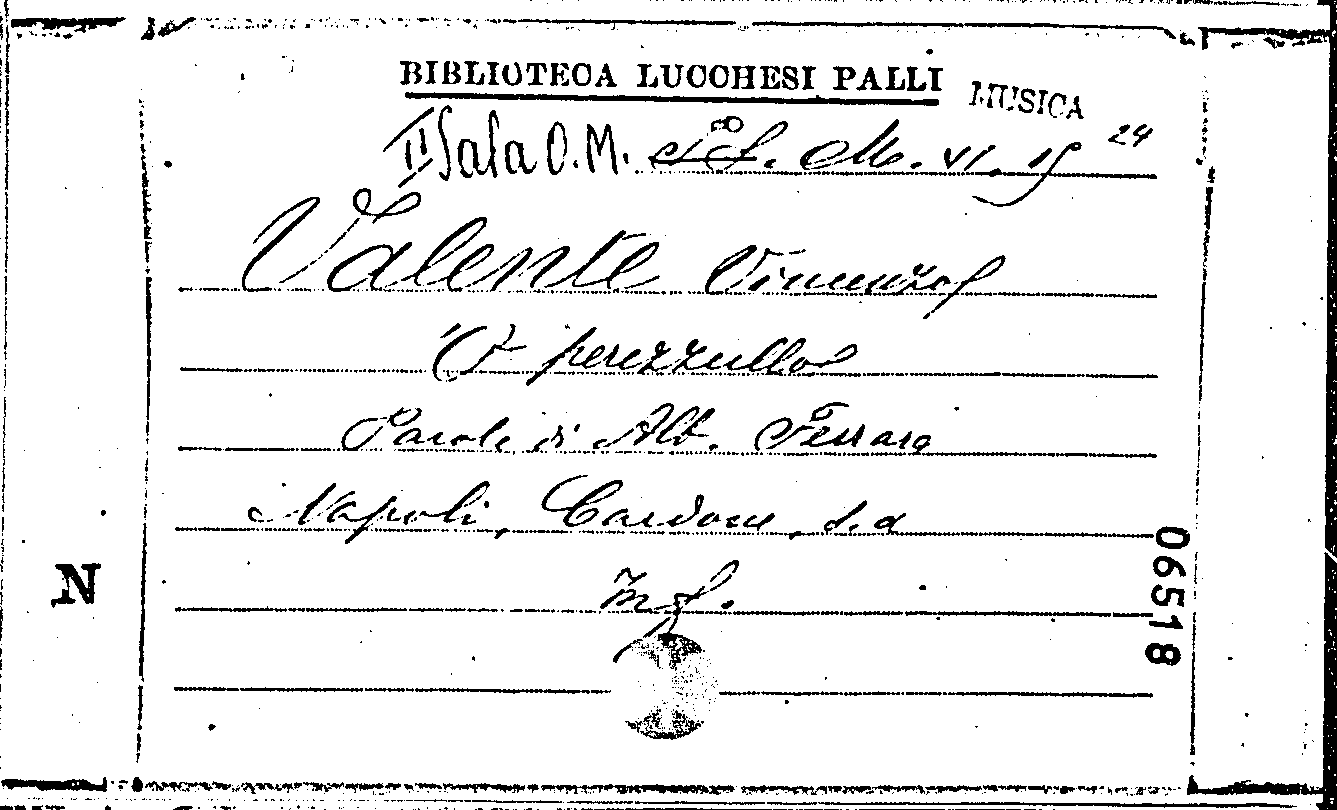 BIBLIOTECA LUCCHESI PALLI MUSICA
II Sala O.M. M. VI. 15 24
Valente Vincenzo
'O perezzullo
Parole di Alb. Ferraro
Napoli, Cardone, s.d
In f.
N
06518